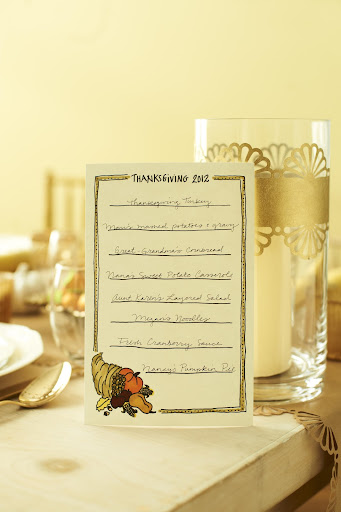 THANKSGIVING 2012
Thanksgiving Turkey
Mom's mashed potatoes + gravy
Great-Grandma's Cornbread
Nana's Sweet Potato Casserole
Aunt Karen's Layered Salad
Megan's Noodles
Fresh Cranberry Sauce
Nancy's Pumpkin Pie